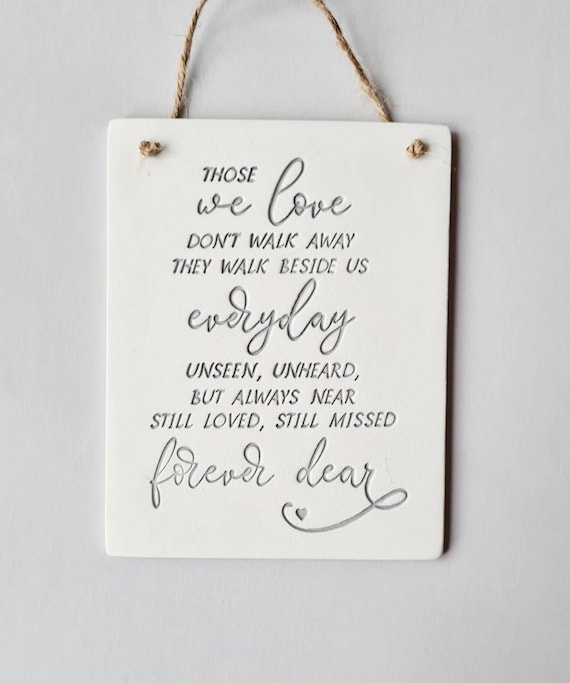 THOSE
we love
DON'T WALK AWAY
THEY WALK BESIDE US
everyday
UNSEEN, UNHEARD,
BUT ALWAYS NEAR
STILL LOVED, STILL MISSED
forever dear